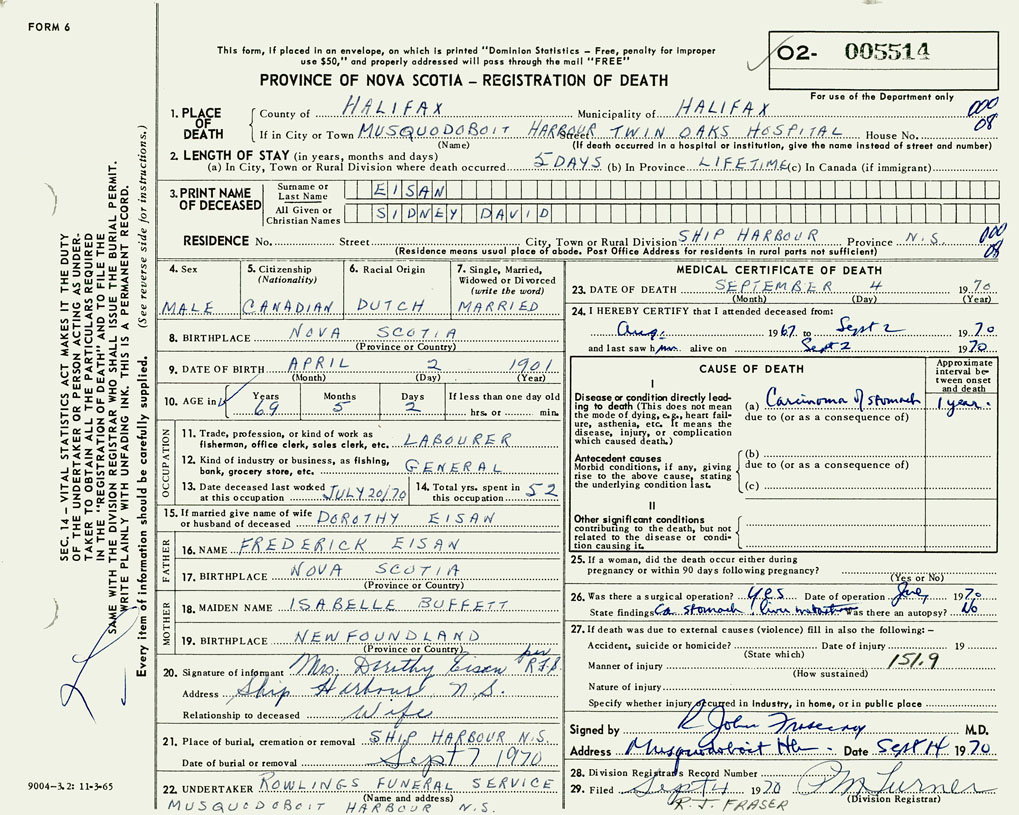 FORM 6
This form, if placed in an envelope, on which is printed "Dominion Statistics – Free, penalty for improper
use $50," and properly addressed will pass through the mail "FREE"
O2- 005514
PROVINCE OF NOVA SCOTIA – REGISTRATION OF DEATH
For use of the Department only
1. PLACE OF DEATH
County of HALIFAX Municipality of HALIFAX 000
If in City or Town MUSQUODOBOIT HARBOUR Street TWIN OAKS HOSPITAL House No. 08
(Name) (If death occurred in a hospital or institution, give the name instead of street and number)
2. LENGTH OF STAY (in years, months and days)
(a) In City, Town or Rural Division where death occurred 5 DAYS (b) In Province LIFETIME (c) In Canada (if immigrant)
3. PRINT NAME OF DECEASED
Surname or Last Name EISAN
All Given or Christian Names SIDNEY DAVID
RESIDENCE No. Street City, Town or Rural Division SHIP HARBOUR Province N.S. 000
(Residence means usual place of abode. Post Office Address for residents in rural parts not sufficient) 08
4. Sex
MALE
5. Citizenship (Nationality)
CANADIAN
6. Racial Origin
DUTCH
7. Single, Married, Widowed or Divorced (write the word)
MARRIED
8. BIRTHPLACE NOVA SCOTIA
(Province or Country)
9. DATE OF BIRTH APRIL 2 1901
(Month) (Day) (Year)
10. AGE in Years Months Days If less than one day old
69 5 2 hrs. or min.
OCCUPATION
11. Trade, profession, or kind of work as
fisherman, office clerk, sales clerk, etc. LABOURER
12. Kind of industry or business, as fishing,
bank, grocery store, etc. GENERAL
13. Date deceased last worked
at this occupation JULY 20/70
14. Total yrs. spent in
this occupation 52
15. If married give name of wife
or husband of deceased DOROTHY EISAN
FATHER
16. NAME FREDERICK EISAN
17. BIRTHPLACE NOVA SCOTIA
(Province or Country)
MOTHER
18. MAIDEN NAME ISABELLE BUFFETT
19. BIRTHPLACE NEWFOUNDLAND
(Province or Country)
20. Signature of informant Mrs. Dorothy Eisan per
Address Ship Harbour N.S.
Relationship to deceased Wife
21. Place of burial, cremation or removal SHIP HARBOUR N.S.
Date of burial or removal Sept 7 1970
22. UNDERTAKER ROWLINGS FUNERAL SERVICE
(Name and address)
MUSQUODOBOIT HARBOUR N.S.
MEDICAL CERTIFICATE OF DEATH
23. DATE OF DEATH SEPTEMBER 4 1970
(Month) (Day) (Year)
24. I HEREBY CERTIFY that I attended deceased from:
Aug. 1967 to Sept 2 1970
and last saw him alive on Sept 2 1970
CAUSE OF DEATH
Approximate interval between onset and death
I
Disease or condition directly lead-
ing to death (This does not mean
the mode of dying, e.g., heart fail-
ure, asthenia, etc. It means the
disease, injury, or complication
which caused death.)
(a) Carcinoma of stomach 1 year.
due to (or as a consequence of)
Antecedent causes
Morbid conditions, if any, giving
rise to the above cause, stating
the underlying condition last.
(b)
due to (or as a consequence of)
(c)
II
Other significant conditions
contributing to the death, but not
related to the disease or condi-
tion causing it.
25. If a woman, did the death occur either during
pregnancy or within 90 days following pregnancy?
(Yes or No)
26. Was there a surgical operation? yes Date of operation 1970
State findings Ca. stomach liver Was there an autopsy? No
27. If death was due to external causes (violence) fill in also the following: –
Accident, suicide or homicide? Date of injury 19
(State which)
Manner of injury 151.9
(How sustained)
Nature of injury
Specify whether injury occurred in Industry, in home, or in public place
Signed by R John M.D.
Address Musquodoboit Hbr. Date Sept 14 1970
28. Division Registrar's Record Number
29. Filed Sept 4 1970 Turner
(Division Registrar)
R. J. FRASER
SEC. 14 – VITAL STATISTICS ACT MAKES IT THE DUTY
OF THE UNDERTAKER OR PERSON ACTING AS UNDER-
TAKER TO OBTAIN ALL THE PARTICULARS REQUIRED
IN THE "REGISTRATION OF DEATH" AND TO FILE THE
SAME WITH THE DIVISION REGISTRAR WHO SHALL ISSUE THE BURIAL PERMIT.
WRITE PLAINLY WITH UNFADING INK. THIS IS A PERMANENT RECORD.
Every item of information should be carefully supplied. (See reverse side for instructions.)
9004–3.2: 11-3-65